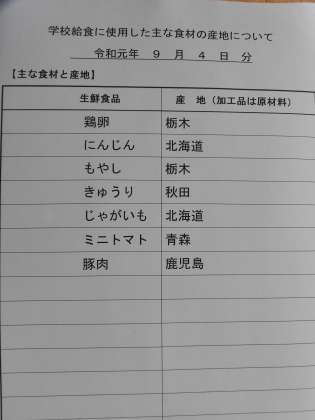 学校給食に使用した主な食材の産地について
令和元年 9 月 4 日 分
【主な食材と産地】
生鮮食品 産 地（加工品は原材料）
鶏卵 栃木
にんじん 北海道
もやし 栃木
きゅうり 秋田
じゃがいも 北海道
ミニトマト 青森
豚肉 鹿児島